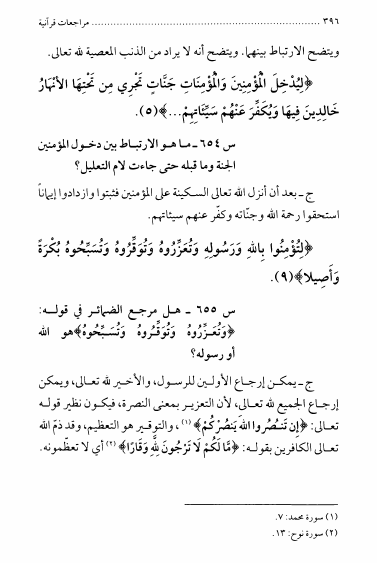 ٣٩٦ ................................................ مراجعات قرآنية
ويتضح الارتباط بينهما. ويتضح أنه لا يراد من الذنب المعصية لله تعالى.
﴿لِيُدْخِلَ الْمُؤْمِنِينَ وَالْمُؤْمِنَاتِ جَنَّاتٍ تَجْرِي مِن تَحْتِهَا الأَنْهَارُ
خَالِدِينَ فِيهَا وَيُكَفِّرَ عَنْهُمْ سَيِّئَاتِهِمْ...﴾(٥).
س ٦٥٤ ـ ما هو الارتباط بين دخول المؤمنين
الجنة وما قبله حتى جاءت لام التعليل؟
ج ـ بعد أن أنزل الله تعالى السكينة على المؤمنين فثبتوا وازدادوا إيماناً
استحقوا رحمة الله وجنّاته وكفّر عنهم سيئاتهم.
﴿لِتُؤْمِنُوا بِاللهِ وَرَسُولِهِ وَتُعَزِّرُوهُ وَتُوَقِّرُوهُ وَتُسَبِّحُوهُ بُكْرَةً
وَأَصِيلا﴾(٩).
س ٦٥٥ ـ هل مرجع الضمائر في قوله:
﴿وَتُعَزِّرُوهُ وَتُوَقِّرُوهُ وَتُسَبِّحُوهُ﴾هو الله
أو رسوله؟
ج ـ يمكن إرجاع الأولين للرسول، والأخير لله تعالى، ويمكن
إرجاع الجميع لله تعالى، لأن التعزير بمعنى النصرة، فيكون نظير قوله
تعالى: ﴿إِن تَنصُرُوا اللهَ يَنصُرْكُمْ﴾(١)، والتوقير هو التعظيم، وقد ذمّ الله
تعالى الكافرين بقوله: ﴿مَّا لَكُمْ لَا تَرْجُونَ لِلَّهِ وَقَارًا﴾(٢) أي لا تعظّمونه.
(١) سورة محمد: ٧.
(٢) سورة نوح: ١٣.